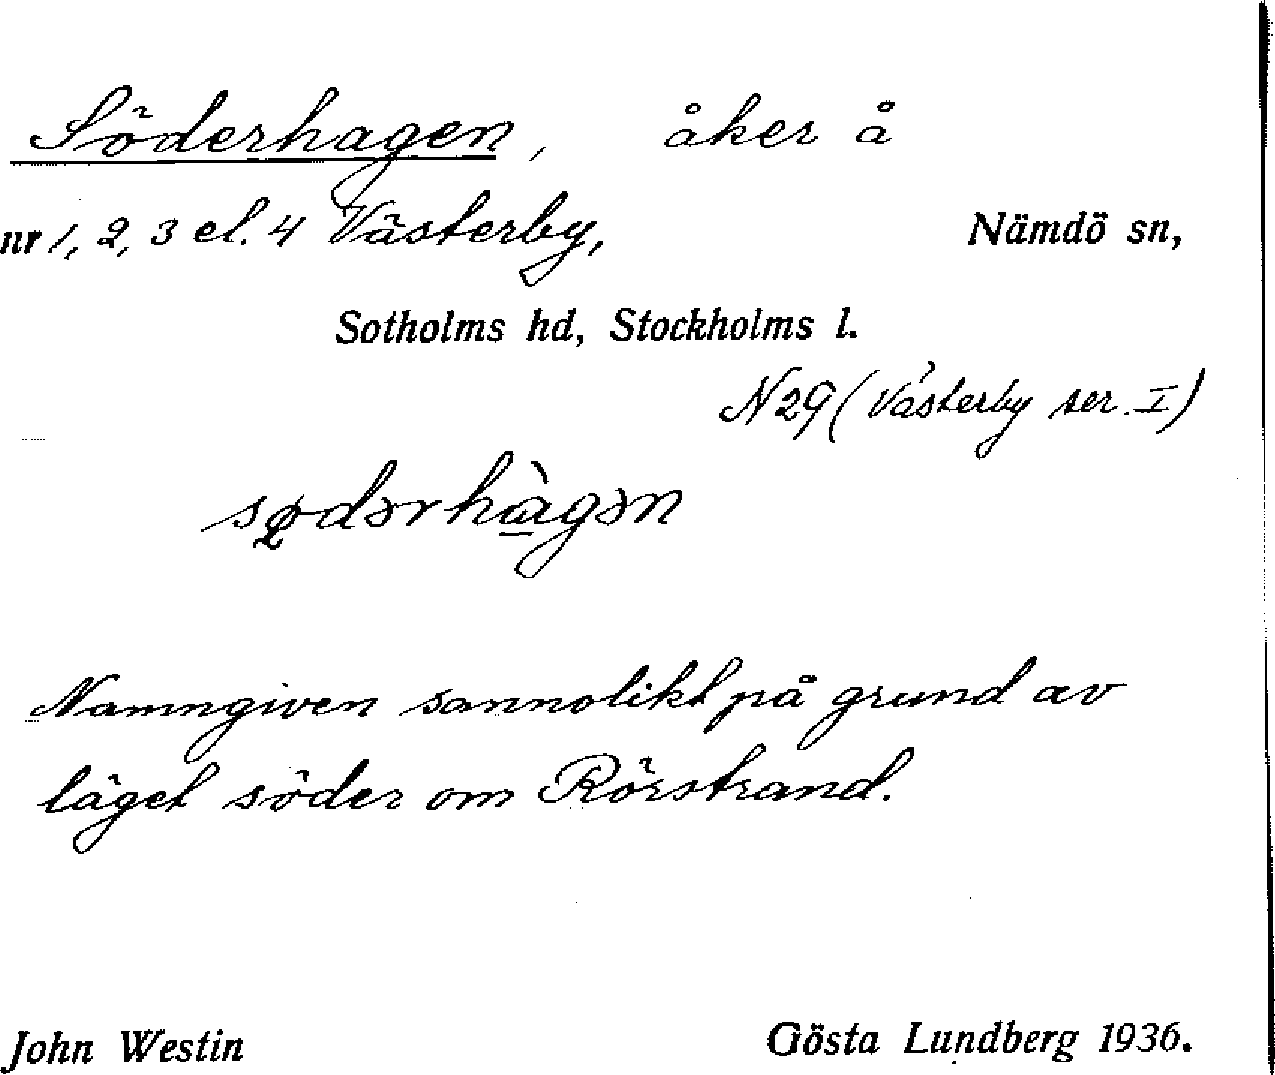 Söderhagen, åker å
nr 1, 2, 3 el. 4 Västerby, Nämdö sn,
Sotholms hd, Stockholms l.
N 29 (Västerby ser. I)
sødərhàgən
Namngiven sannolikt på grund av
läget söder om Rörstrand.
John Westin Gösta Lundberg 1936.